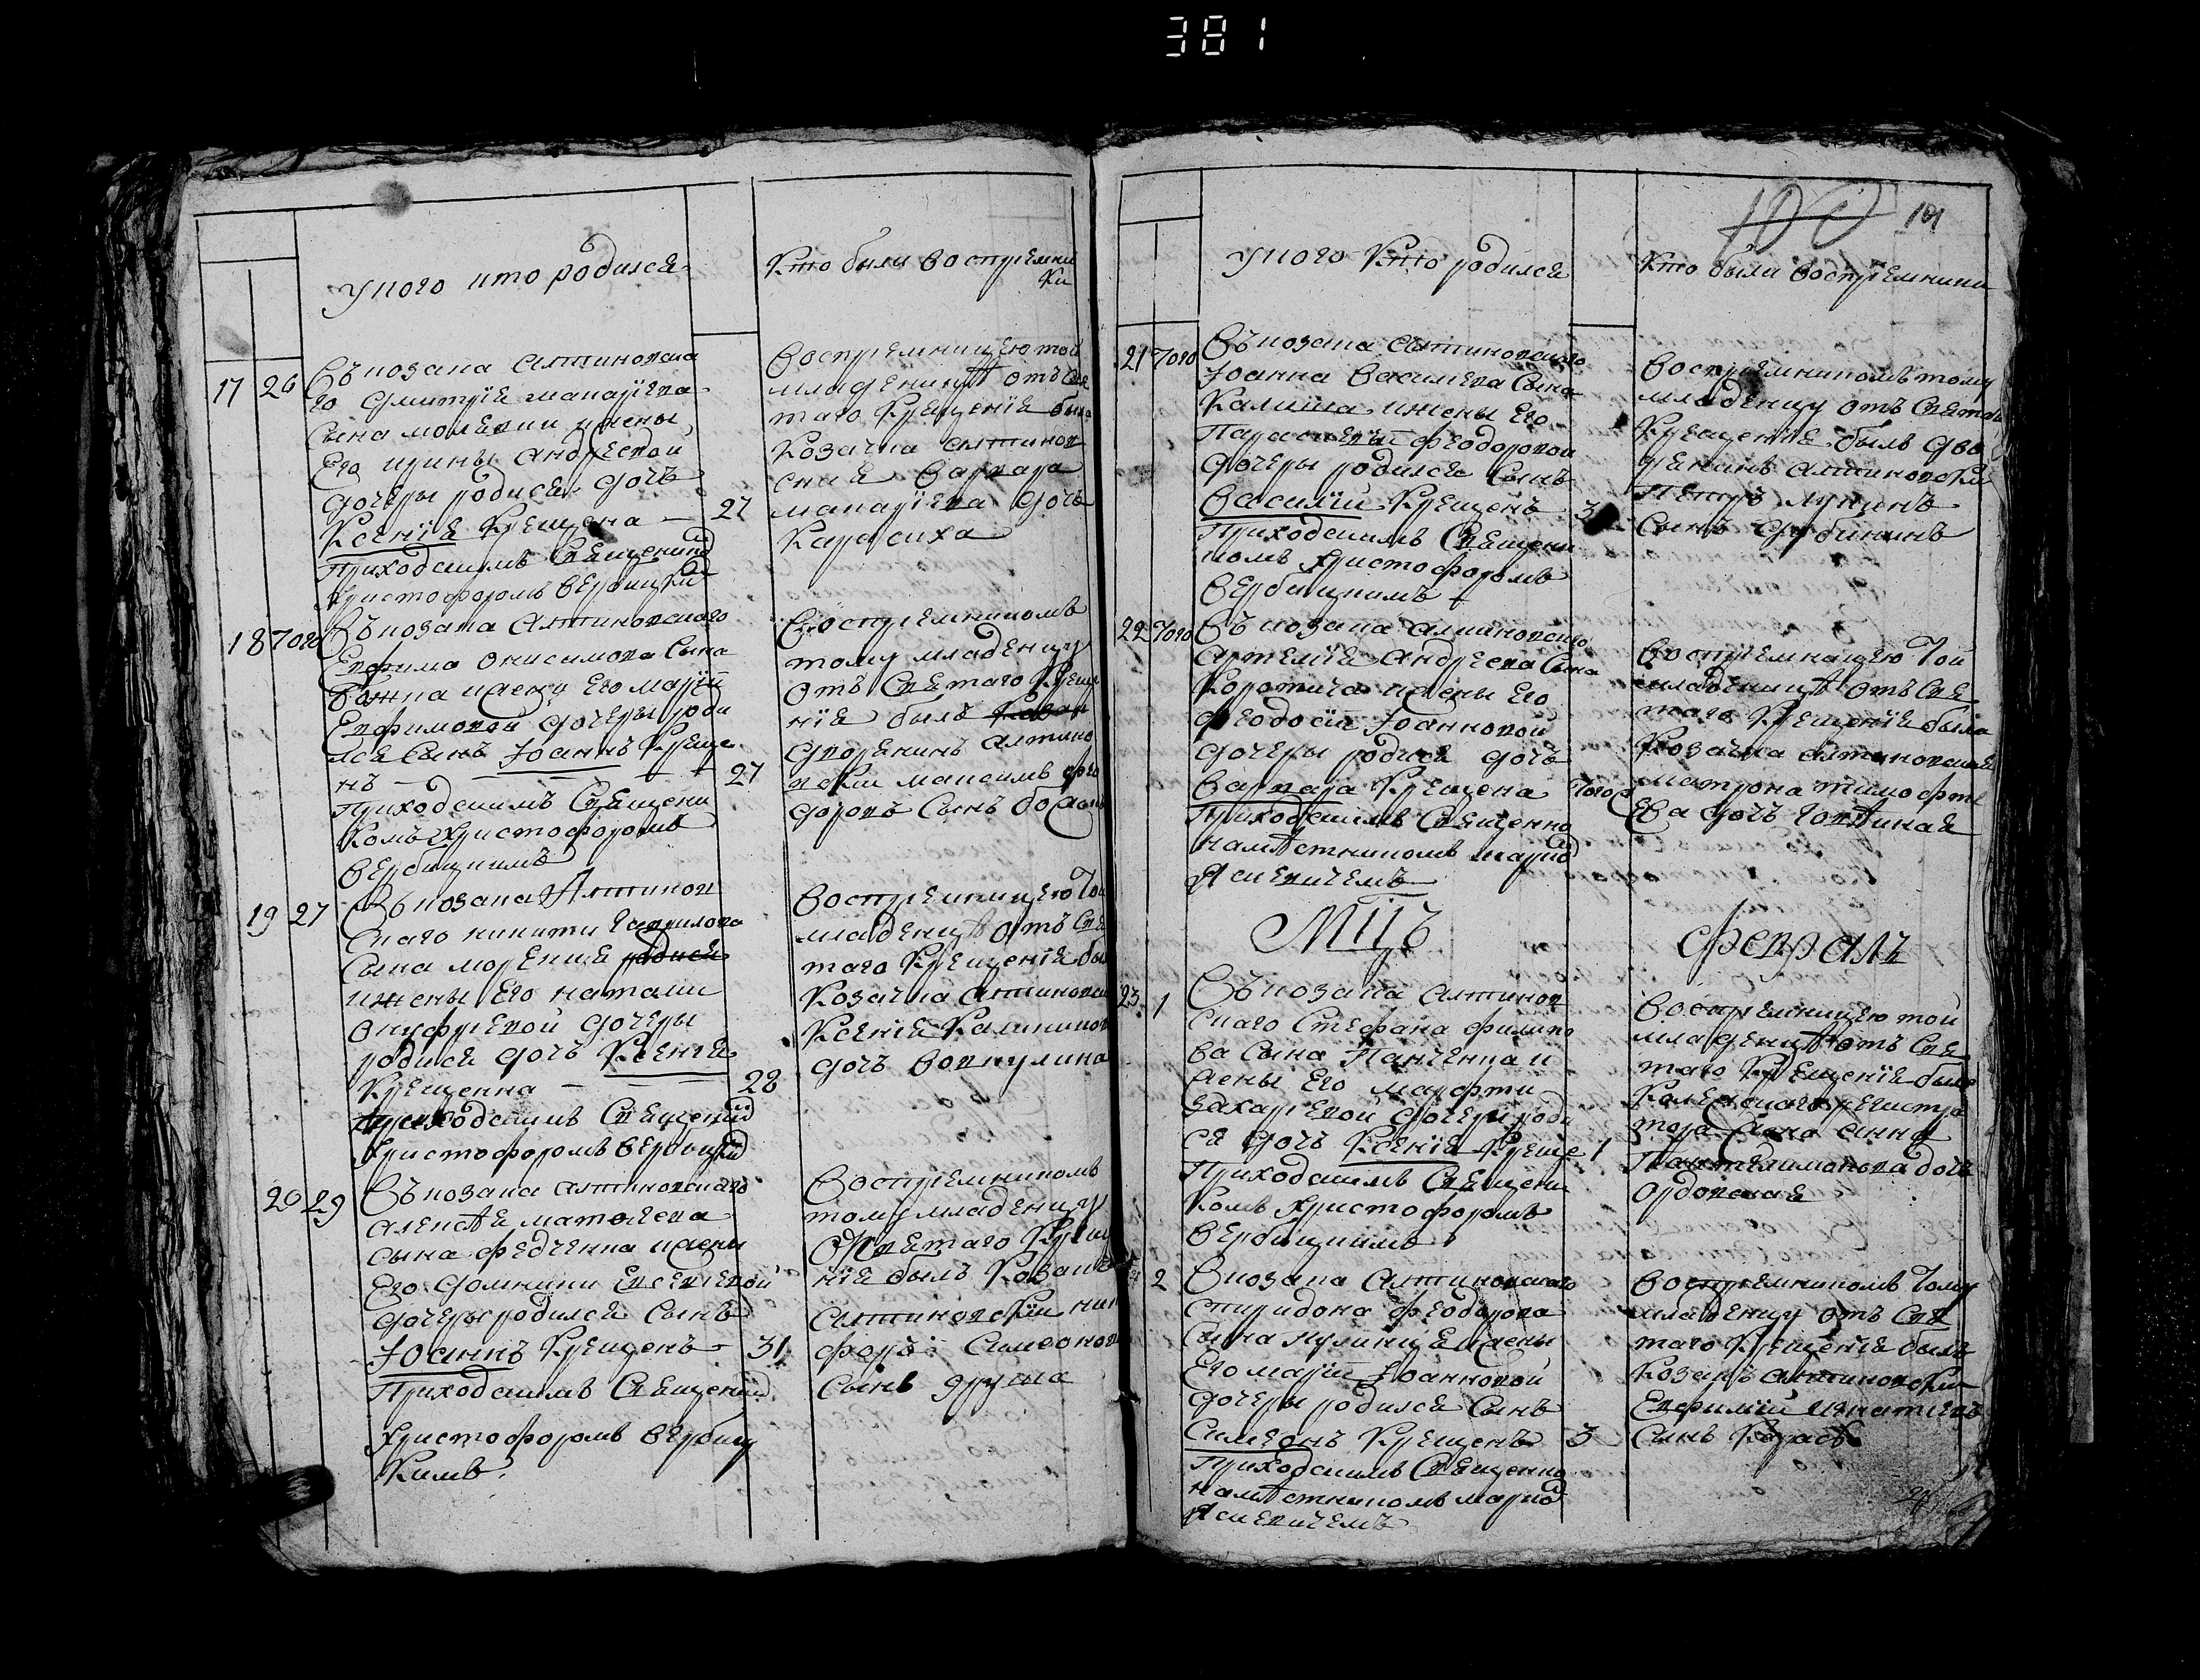 381
у кого кто родился
Кто были воспрiемни
ки
17 26 Въ козака Алтиновска
го Дмитрiя Макарiева
Сына жены
Его Ирины Андреевой
Дочеры родися дочъ
Ксенiя Крещена — 27
Приходскимъ Священико
Христофоромъ Вербицки
Воспрiемницею той
младеницѣ отъ Свя
таго Крещенiя была
Козачка Алтинов
ская Варвара
Макарiева дочъ
Карасиха
18 Того Въ козака Алтиновскаго
Евфима Онисимова Сына
жены Его Марiи
Евфимовой дочеры роди
лся Сынъ Iоаннъ Креще
нъ — 27
Приходскимъ Священи
комъ Христофоромъ
Вербицкимъ
Воспрiемникомъ
тому младенцу
отъ Святаго Креще
нiя былъ
дворянинъ Алтино
вскiи Максимъ Фео
доровъ Сынъ
19 27 Въ козака Алтинов
скаго Никити Гаврилова
Сына родися
и жены Его Наталiи
Онуфрiевой дочеры
родися дочъ Ксенiя
Крещенна — 28
Приходскимъ Священик
Христофоромъ Вербицки
Воспрiемницею той
младеницѣ отъ Свя
таго Крещенiя был
Козачка Алтиновска
Ксенiя Калинниов
дочъ Вовкулина
20 29 Въ козака Алтиновскаго
Алексѣя Матвеева
сына Федченка и жены
Его Домникiи Евсевiевой
дочеры родился Сынъ
Iоаннъ Крещенъ — 31
Приходскимъ Священик
Христофоромъ Вербиц
кимъ
Воспрiемникомъ
тому младенцу
от Святаго Креще
нiя былъ Козакъ
Алтиновскiи Ник
форъ Симеонов
Сынъ
101
у кого Кто родился
Кто были воспрiемники
21 Того Въ козака Алтиновскаго
Iоанна Василiева Сына
Калиша и жены Его
Параскевiи Феодоровой
дочеры родился Сынъ
Василiй Крещенъ 3
Приходскимъ Священи
комъ Христофоромъ
Вербицкимъ
Воспрiемникомъ тому
младенцу отъ Святаго
Крещенiя былъ дво
ренинъ Алтиновскiй
Петръ Лукинъ
Сынъ
22 Того Въ козака Алтиновскаго
Артемiя Андреева Сына
Коротича и жены Его
Феодосiи Iоанновой
дочеры родися дочъ
Варвара Крещена Того
Приходскимъ Священно
намѣстникомъ Марко
Яскевичемъ
Воспрiемницею Той
младеницѣ отъ Свя
таго Крещенiя была
Козачка Алтиновская
Матрона Тимофѣе
ва дочъ
Мцъ Февралъ
23 1 Въ козака Алтинов
скаго Стефана Филипо
ва Сына Панченка и
жены Его Марфи
Захарiевой дочери роди
ся дочъ Ксенiя Креще 1
Приходскимъ Священи
комъ Христофоромъ
Вербицкимъ
Воспрiемницею той
младеницѣ отъ Свя
таго Крещенiя была
Колежскаго регистра
тора жена Анна
Пантелимонова дочъ
Ордовская
2 В козака Алтиновскаго
Спиридона Феодорова
Сына и жены
Его Марiи Iоанновой
дочеры родился Сынъ
Симеонъ Крещенъ 3
Приходскимъ Священно
намѣстникомъ Марко
Яскевичемъ
Воспрiемникомъ Тому
младенцу отъ Свя
таго Крещенiя былъ
Козакъ Алтиновскiй
Евфимiй Игнатiевъ
Синъ Карасъ